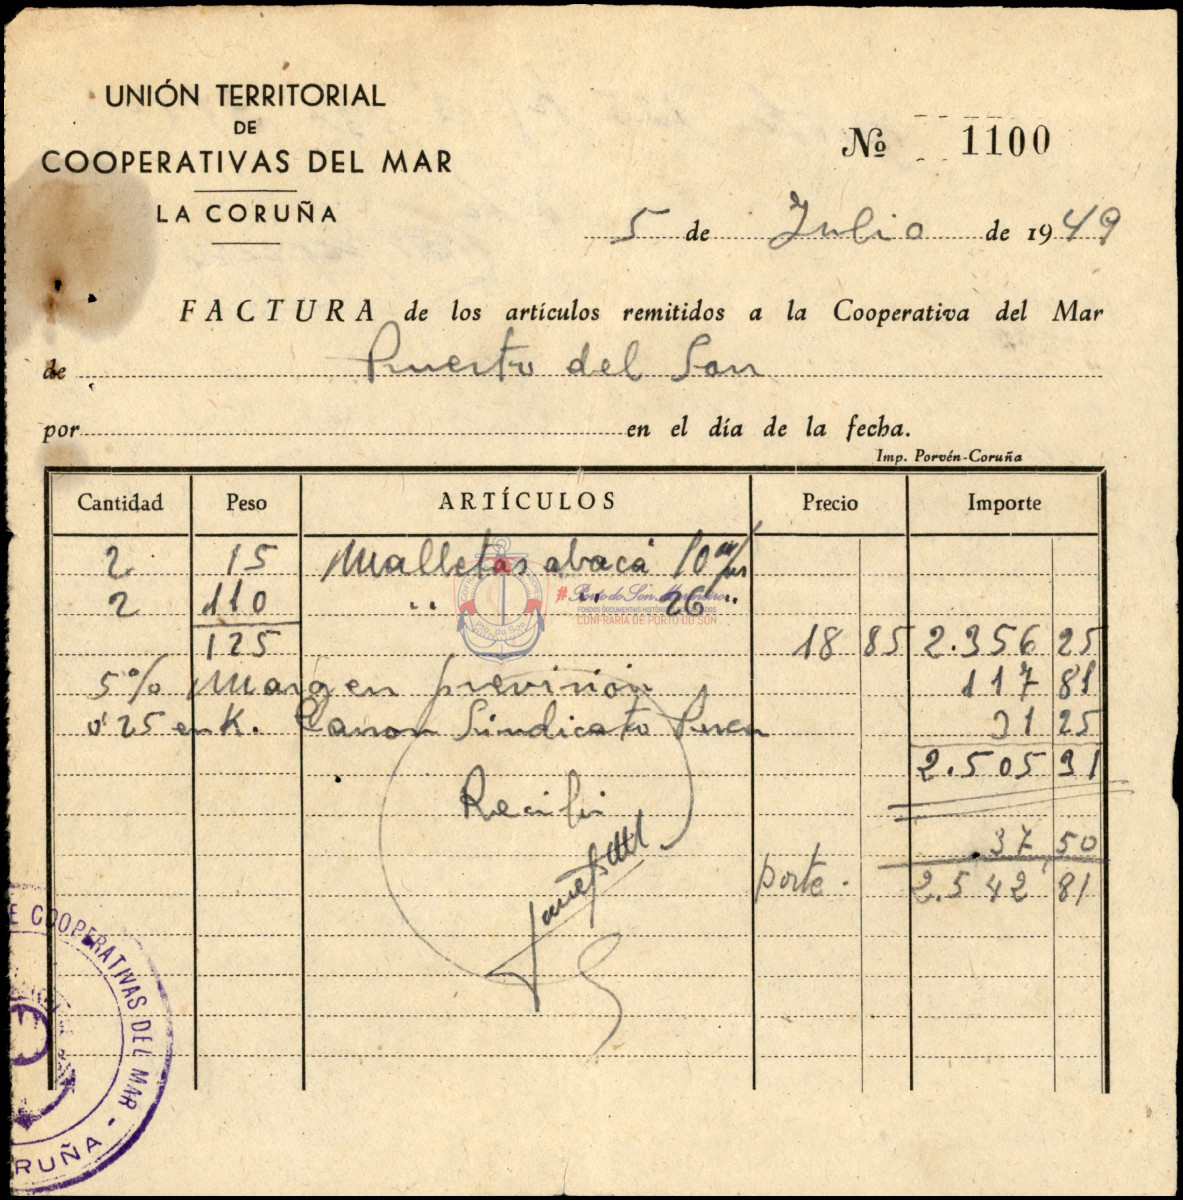 UNIÓN TERRITORIAL
DE
COOPERATIVAS DEL MAR
LA CORUÑA
Nº 1100
5 de Julio de 1949
FACTURA de los artículos remitidos a la Cooperativa del Mar
de Puerto del Son
por en el día de la fecha.
Imp. Porvén-Coruña
Cantidad Peso ARTÍCULOS Precio Importe
2 15 Malletas abacá 10 m/m
2 110 " " 26 "
125 18 85 2.356 25
5% Margen previsión 117 81
0'25 en K. Canon Sindicato 31 25
2.505 31
Recibí
37,50
porte. 2.542,81
E COOPERATIVAS DEL MAR -
RUÑA
#Porto do Son
FONDOS DOCUMENTAIS
CONFRARÍA DE PORTO DO SON
Pto. do Son